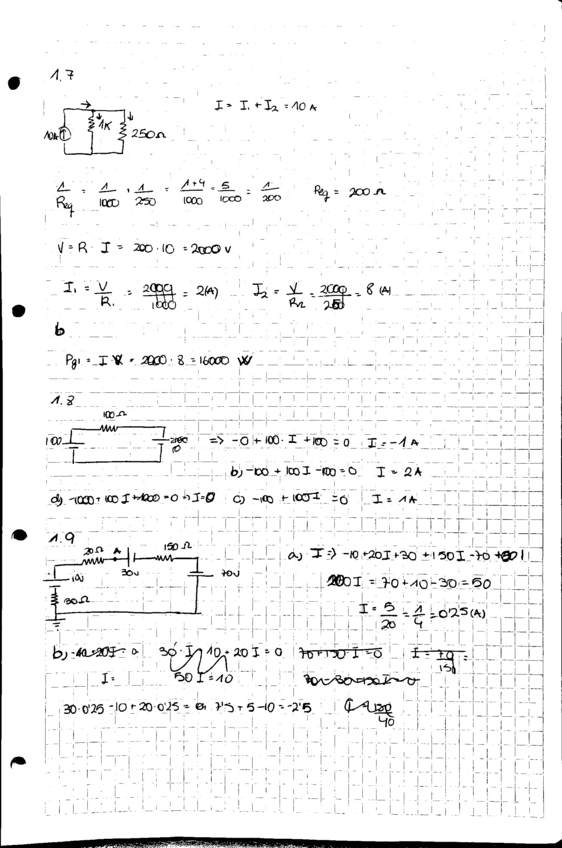 1.7
I = I1 + I2 = 10 A
10A
1K
250Ω
1/Req = 1/1000 + 1/250 = 1+4/1000 = 5/1000 = 1/200 Req = 200 Ω
V = R · I = 200 · 10 = 2000 V
I1 = V/R1 = 2000/1000 = 2(A) I2 = V/R2 = 2000/250 = 8 (A)
b
Pg1 = I · V = 2000 · 8 = 16000 W
1.8
100 Ω
100
=> -0 + 100 · I + 100 = 0 I = -1 A
b) -100 + 100 I - 100 = 0 I = 2A
d) -1000 + 100 I + 1000 = 0 I = 0 c) -100 + 100 I = 0 I = 1A
1.9
20Ω A 150Ω
10V 30V 70V
30Ω
a) I => -10 + 20I + 30 + 150 I - 70 + 30 I
200 I = 70 + 10 - 30 = 50
I = 5/20 = 1/4 = 0'25 (A)
b) 30 · I - 10 + 20 I = 0 70 + 150 I = 0 I = 70/150 =
I = 50 I = 10
30 · 0'25 - 10 + 20 · 0'25 = 7'5 + 5 - 10 = -2'5